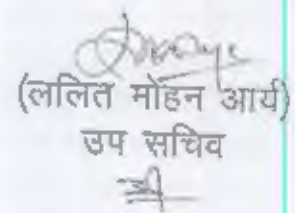 (ललित मोहन आर्य)
उप सचिव